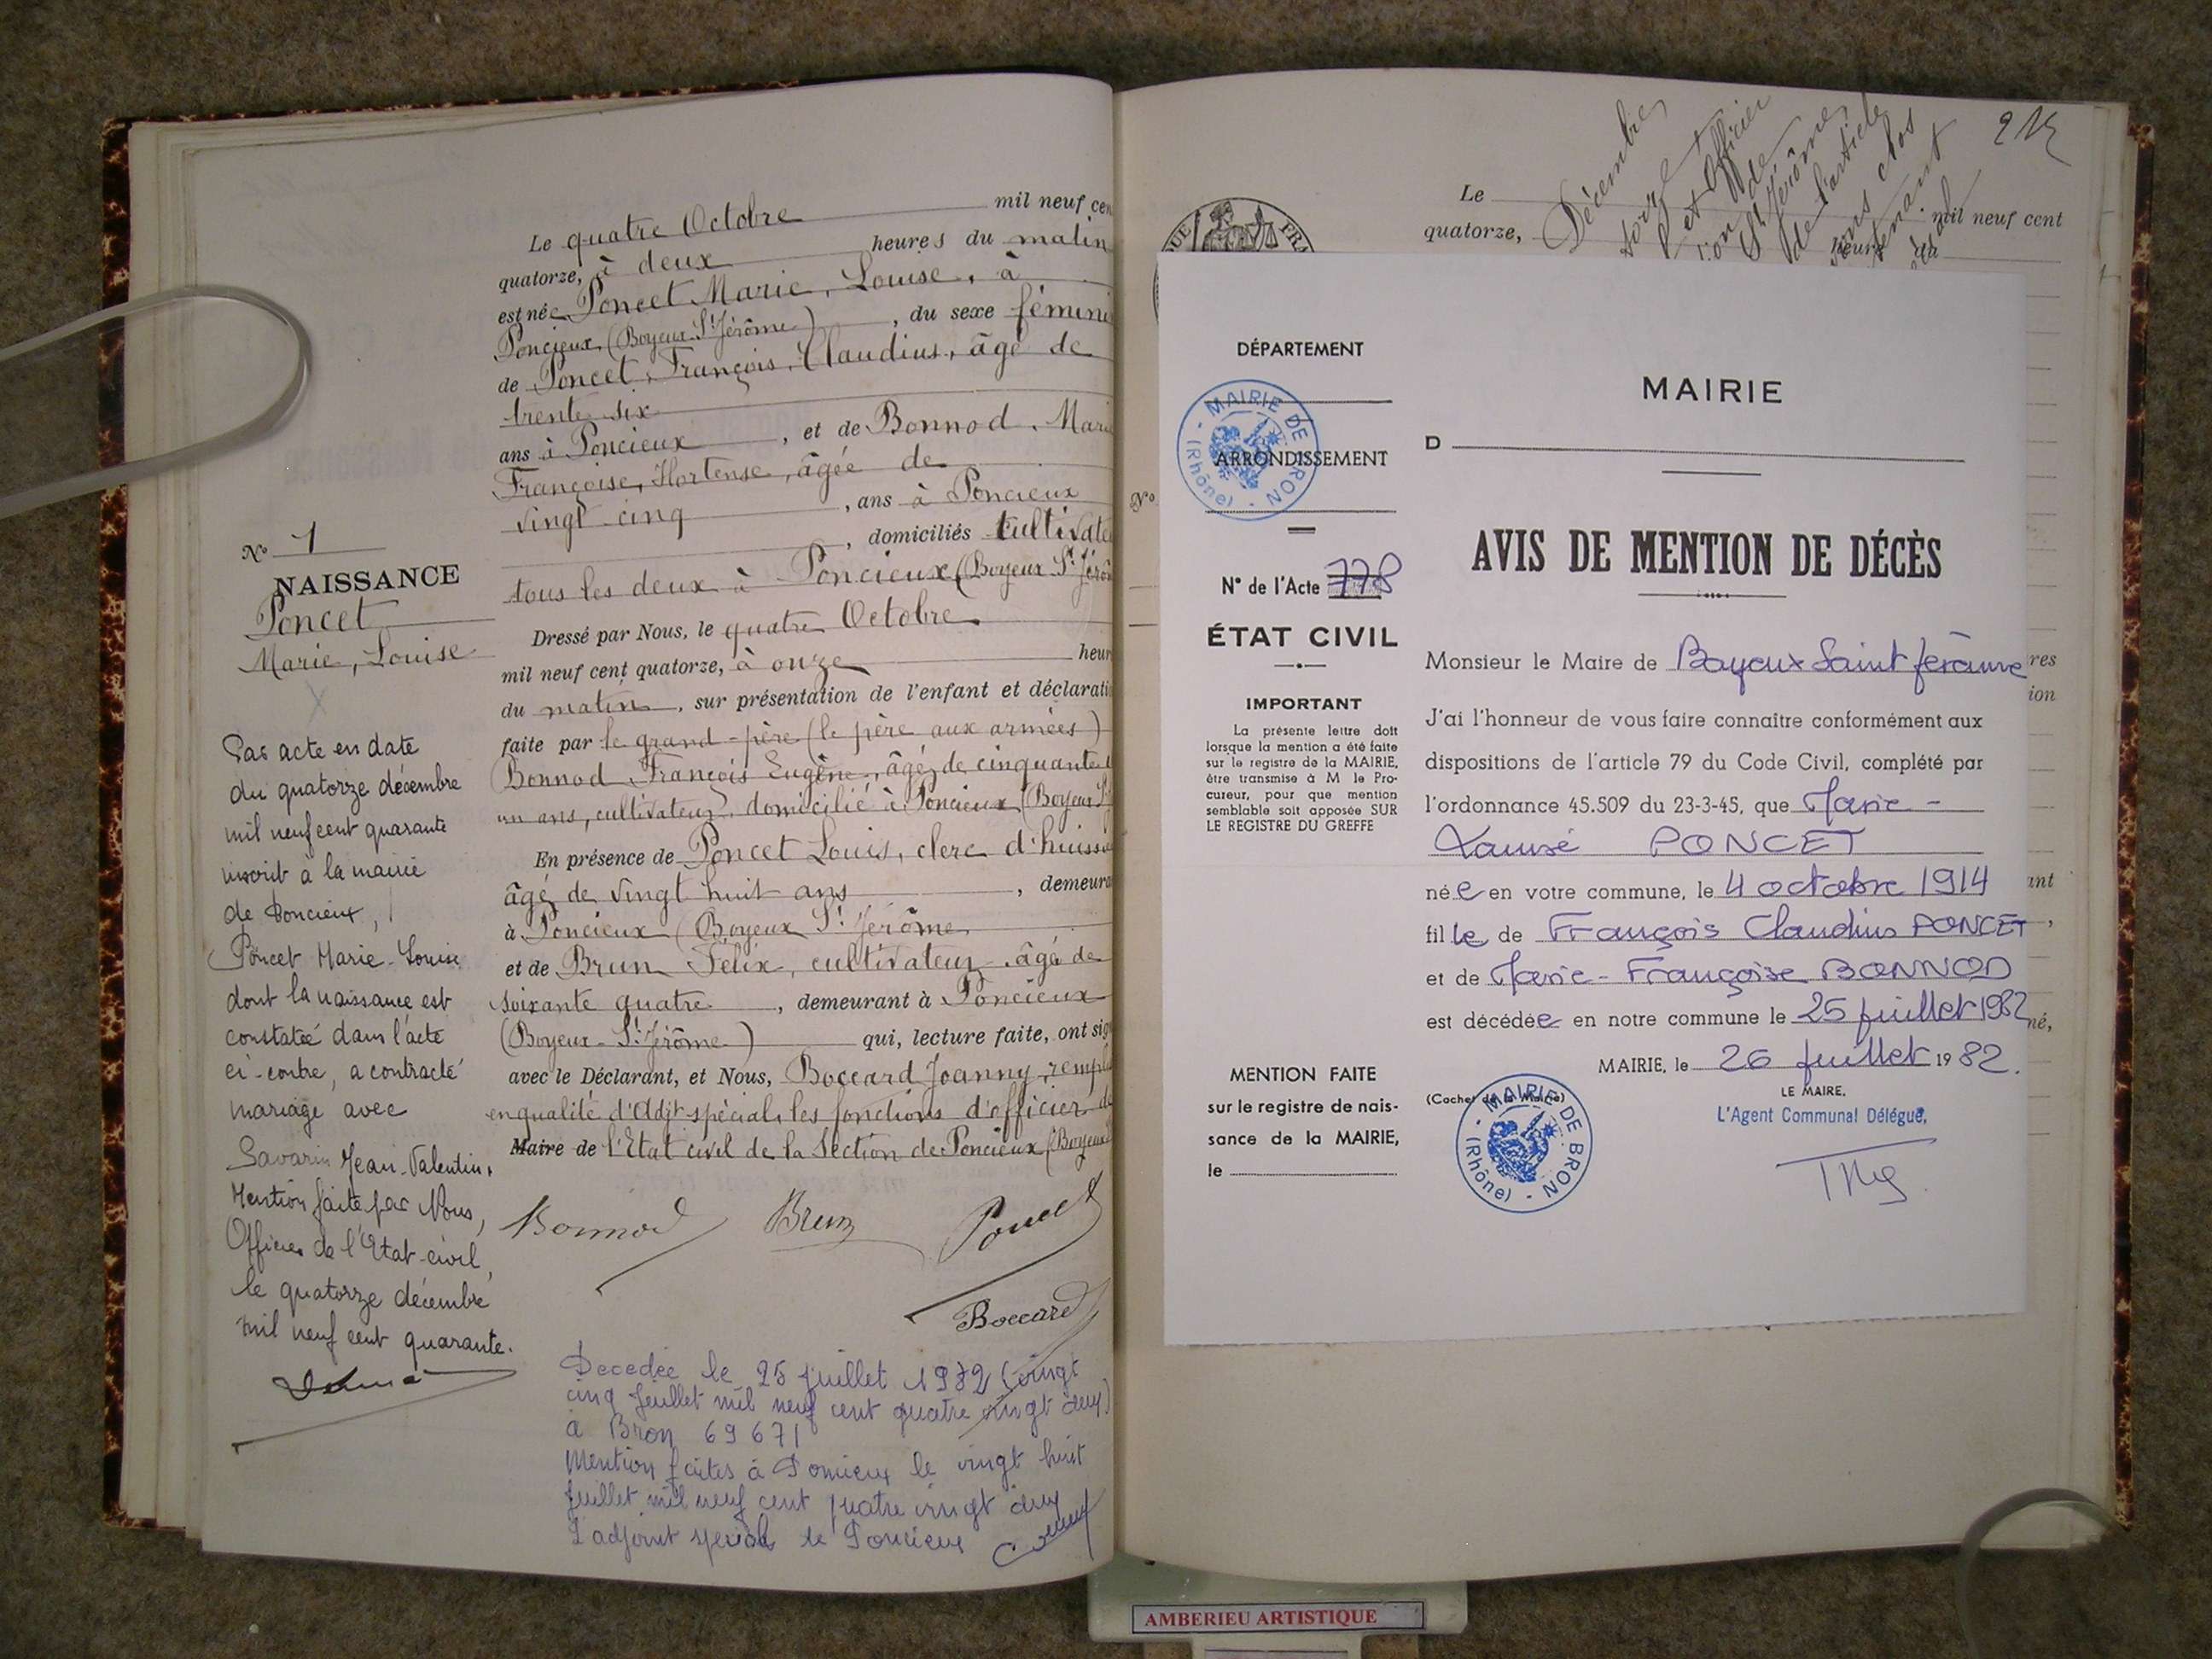 Le quatre Octobre mil neuf cen
quatorze, à deux heures du matin
est née Poncet Marie, Louise, à
Poncieux (Boyeux St Jérôme), du sexe fémini
de Poncet, François, Claudius, âgé de
trente-six
ans à Poncieux, et de Bonnod, Mari
Françoise, Hortense, âgée de
vingt-cinq, ans à Poncieux
, domiciliés cultivate
tous les deux à Poncieux (Boyeux St Jérôm
Dressé par Nous, le quatre Octobre
mil neuf cent quatorze, à onze heur
du matin, sur présentation de l'enfant et déclarati
faite par le grand-père (le père aux armées)
Bonnod François Eugène, âgé de cinquante
un ans, cultivateur, domicilié à Poncieux (Boyeux St
En présence de Poncet Louis, clerc d'huiss
âgé de vingt huit ans, demeura
à Poncieux (Boyeux St Jérôme
et de Brun Félix, cultivateur, âgé de
soixante quatre, demeurant à Poncieux
(Boyeux-St Jérôme) qui, lecture faite, ont sig
avec le Déclarant, et Nous, Boccard Joanny, rempl
en qualité d'Adjt spécial, les fonctions d'officier de
Maire de l'Etat civil de la Section de Poncieux (Boyeux
Bonnod Brun Poncet
Boccard
Décédée le 25 juillet 1982 (vingt
cinq juillet mil neuf cent quatre vingt deux)
à Bron 69671
Mention faites à Poncieux le vingt huit
juillet mil neuf cent quatre vingt deux
L'adjoint spécial de Poncieux
No 1
NAISSANCE
Poncet
Marie, Louise
Par acte en date
du quatorze décembre
mil neuf cent quarante
inscrit à la mairie
de Poncieux,
Poncet Marie-Louise
dont la naissance est
constatée dans l'acte
ci-contre, a contracté
mariage avec
Savarin Jean-Valentin.
Mention faite par Nous,
Officier de l'Etat-civil,
le quatorze décembre
mil neuf cent quarante.
Le mil neuf cent
quatorze, heure du
Décembre
et Officier
de
St Jérôme
de l'article
clos
No
DÉPARTEMENT
MAIRIE DE BRON
(Rhône)
ARRONDISSEMENT
N° de l'Acte 778
ÉTAT CIVIL
IMPORTANT
La présente lettre doit
lorsque la mention a été faite
sur le registre de la MAIRIE,
être transmise à M le Pro-
cureur, pour que mention
semblable soit apposée SUR
LE REGISTRE DU GREFFE
MENTION FAITE
sur le registre de nais-
sance de la MAIRIE,
le
MAIRIE
D
AVIS DE MENTION DE DÉCÈS
Monsieur le Maire de Boyeux Saint Jérôme
J'ai l'honneur de vous faire connaître conformément aux
dispositions de l'article 79 du Code Civil, complété par
l'ordonnance 45.509 du 23-3-45, que Marie-
Louise PONCET
née en votre commune, le 4 octobre 1914
fille de François Claudius PONCET
et de Marie-Françoise BONNOD
est décédée en notre commune le 25 juillet 1982
MAIRIE, le 26 juillet 1982.
(Cachet de la Mairie)
LE MAIRE,
L'Agent Communal Délégué,
MAIRIE DE BRON
(Rhône)
res
ion
ant
né,
AMBERIEU ARTISTIQUE